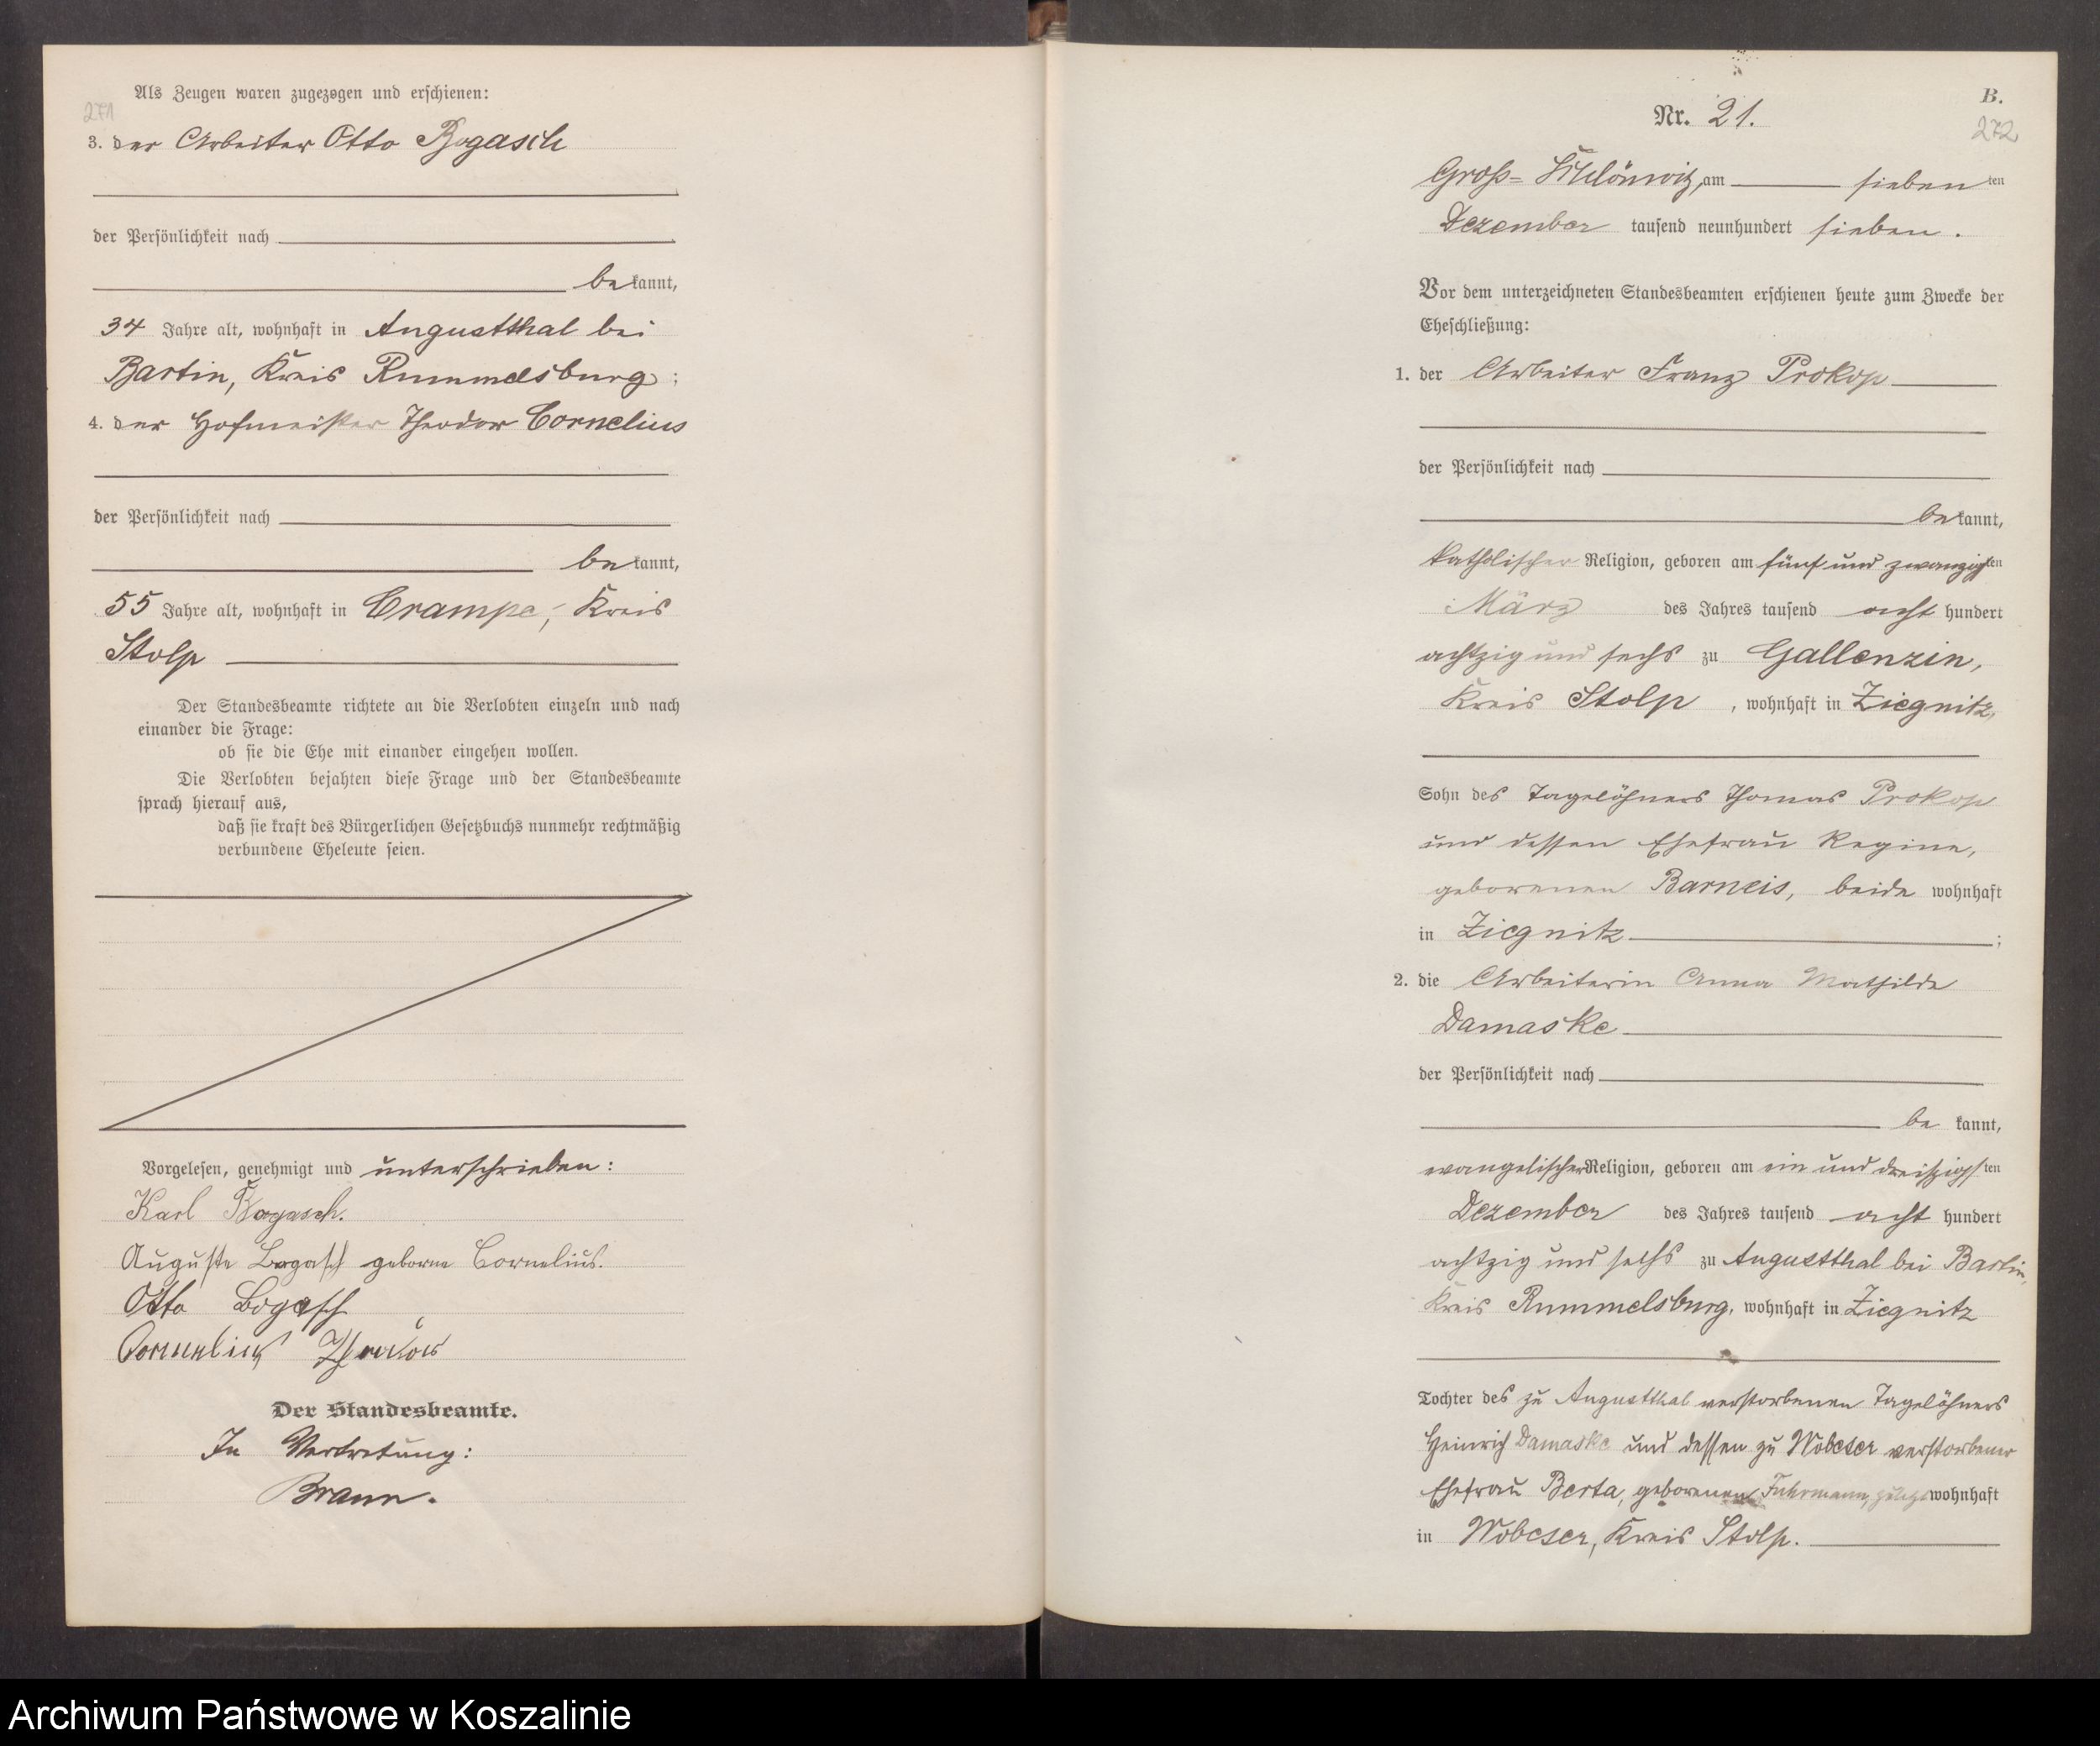 271
Als Zeugen waren zugezogen und erschienen:
3. der Arbeiter Otto Bogasch
der Persönlichkeit nach
bekannt,
34 Jahre alt, wohnhaft in Augustthal bei
Bartin, Kreis Rummelsburg;
4. der Hofmeister Theodor Cornelius
der Persönlichkeit nach
bekannt,
55 Jahre alt, wohnhaft in Crampe, Kreis
Stolp
Der Standesbeamte richtete an die Verlobten einzeln und nach
einander die Frage:
ob sie die Ehe mit einander eingehen wollen.
Die Verlobten bejahten diese Frage und der Standesbeamte
sprach hierauf aus,
daß sie kraft des Bürgerlichen Gesetzbuchs nunmehr rechtmäßig
verbundene Eheleute seien.
Vorgelesen, genehmigt und unterschrieben:
Karl Bogasch.
Auguste Bogasch geborne Cornelius.
Otto Bogasch
Cornelius Theodor
Der Standesbeamte.
In Vertretung:
Braun.
B.
272
Nr. 21.
Groß-Schlönwitz, am siebenten
Dezember tausend neunhundert sieben.
Vor dem unterzeichneten Standesbeamten erschienen heute zum Zwecke der
Eheschließung:
1. der Arbeiter Franz Prokop
der Persönlichkeit nach
bekannt,
katholischer Religion, geboren am fünf und zwanzigsten
März des Jahres tausend acht hundert
achtzig und sechs zu Gallenzin,
Kreis Stolp, wohnhaft in Ziegnitz,
Sohn des Tagelöhners Thomas Prokop
und dessen Ehefrau Regine,
geborenen Barneis, beide wohnhaft
in Ziegnitz;
2. die Arbeiterin Anna Mathilde
Damaske
der Persönlichkeit nach
bekannt,
evangelischer Religion, geboren am ein und dreißigsten
Dezember des Jahres tausend acht hundert
achtzig und sechs zu Augustthal bei Bartin,
Kreis Rummelsburg, wohnhaft in Ziegnitz
Tochter des zu Augustthal verstorbenen Tagelöhners
Heinrich Damaske und dessen zu Wobeser verstorbener
Ehefrau Berta, geborenen Fuhrmann, wohnhaft
in Wobeser, Kreis Stolp.
Archiwum Państwowe w Koszalinie